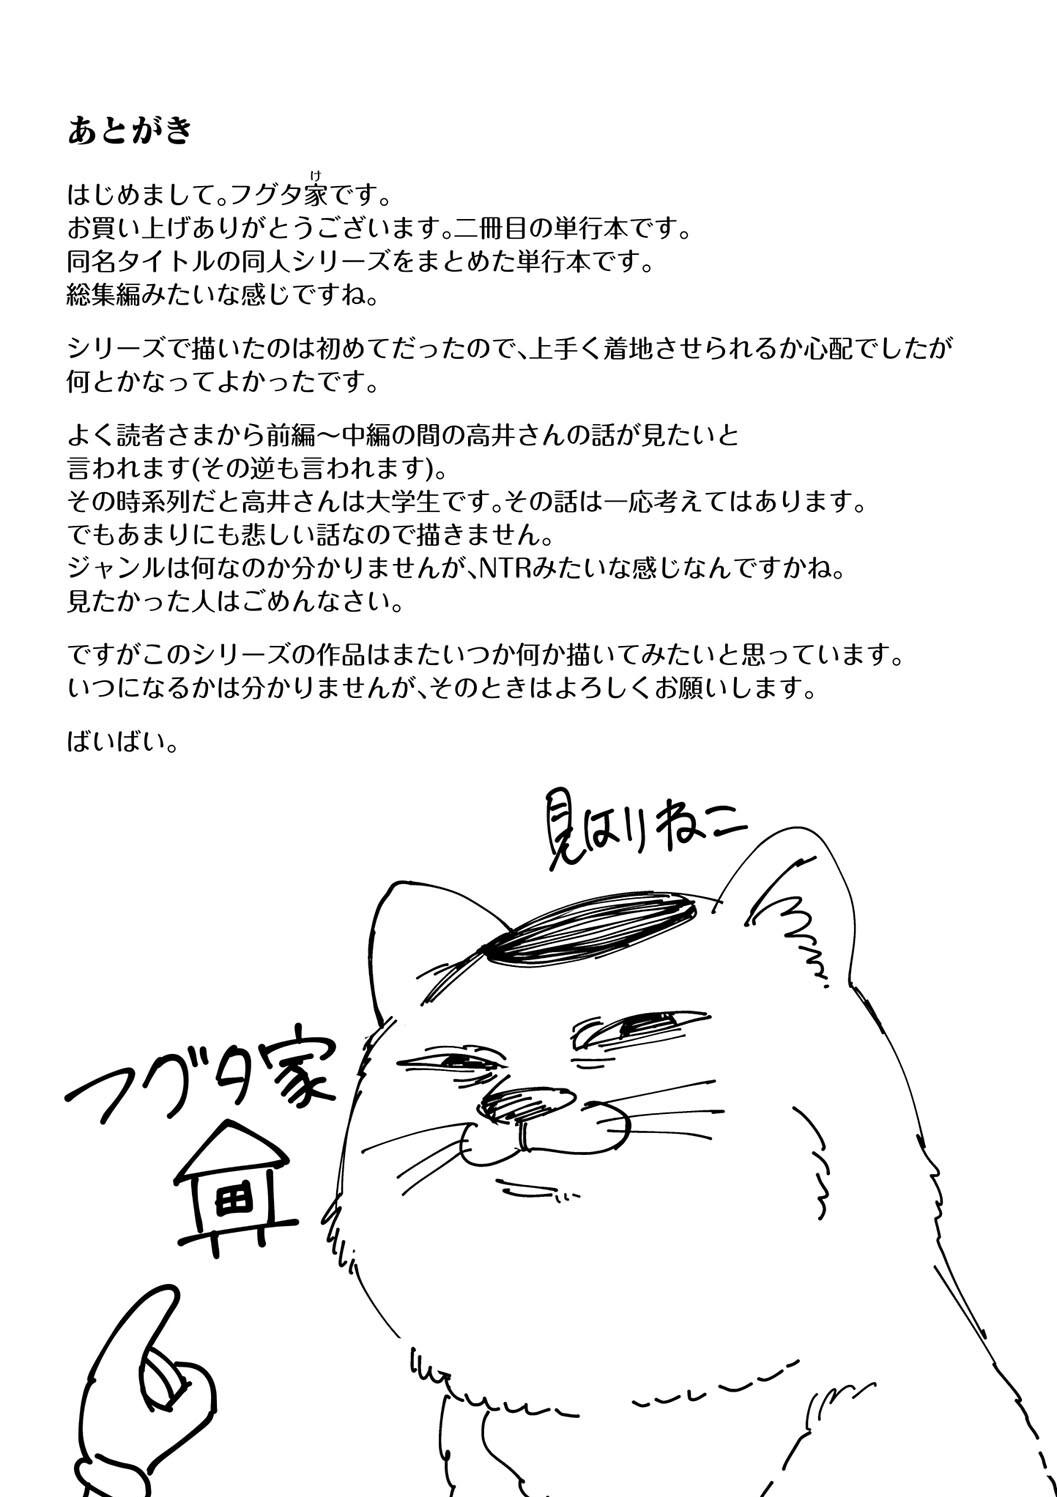 あとがき
はじめまして。フグタ家です。
け
お買い上げありがとうございます。二冊目の単行本です。
同名タイトルの同人シリーズをまとめた単行本です。
総集編みたいな感じですね。
シリーズで描いたのは初めてだったので、上手く着地させられるか心配でしたが
何とかなってよかったです。
よく読者さまから前編～中編の間の高井さんの話が見たいと
言われます(その逆も言われます)。
その時系列だと高井さんは大学生です。その話は一応考えてはあります。
でもあまりにも悲しい話なので描きません。
ジャンルは何なのか分かりませんが、NTRみたいな感じなんですかね。
見たかった人はごめんなさい。
ですがこのシリーズの作品はまたいつか何か描いてみたいと思っています。
いつになるかは分かりませんが、そのときはよろしくお願いします。
ばいばい。
見はりねこ
フグタ家